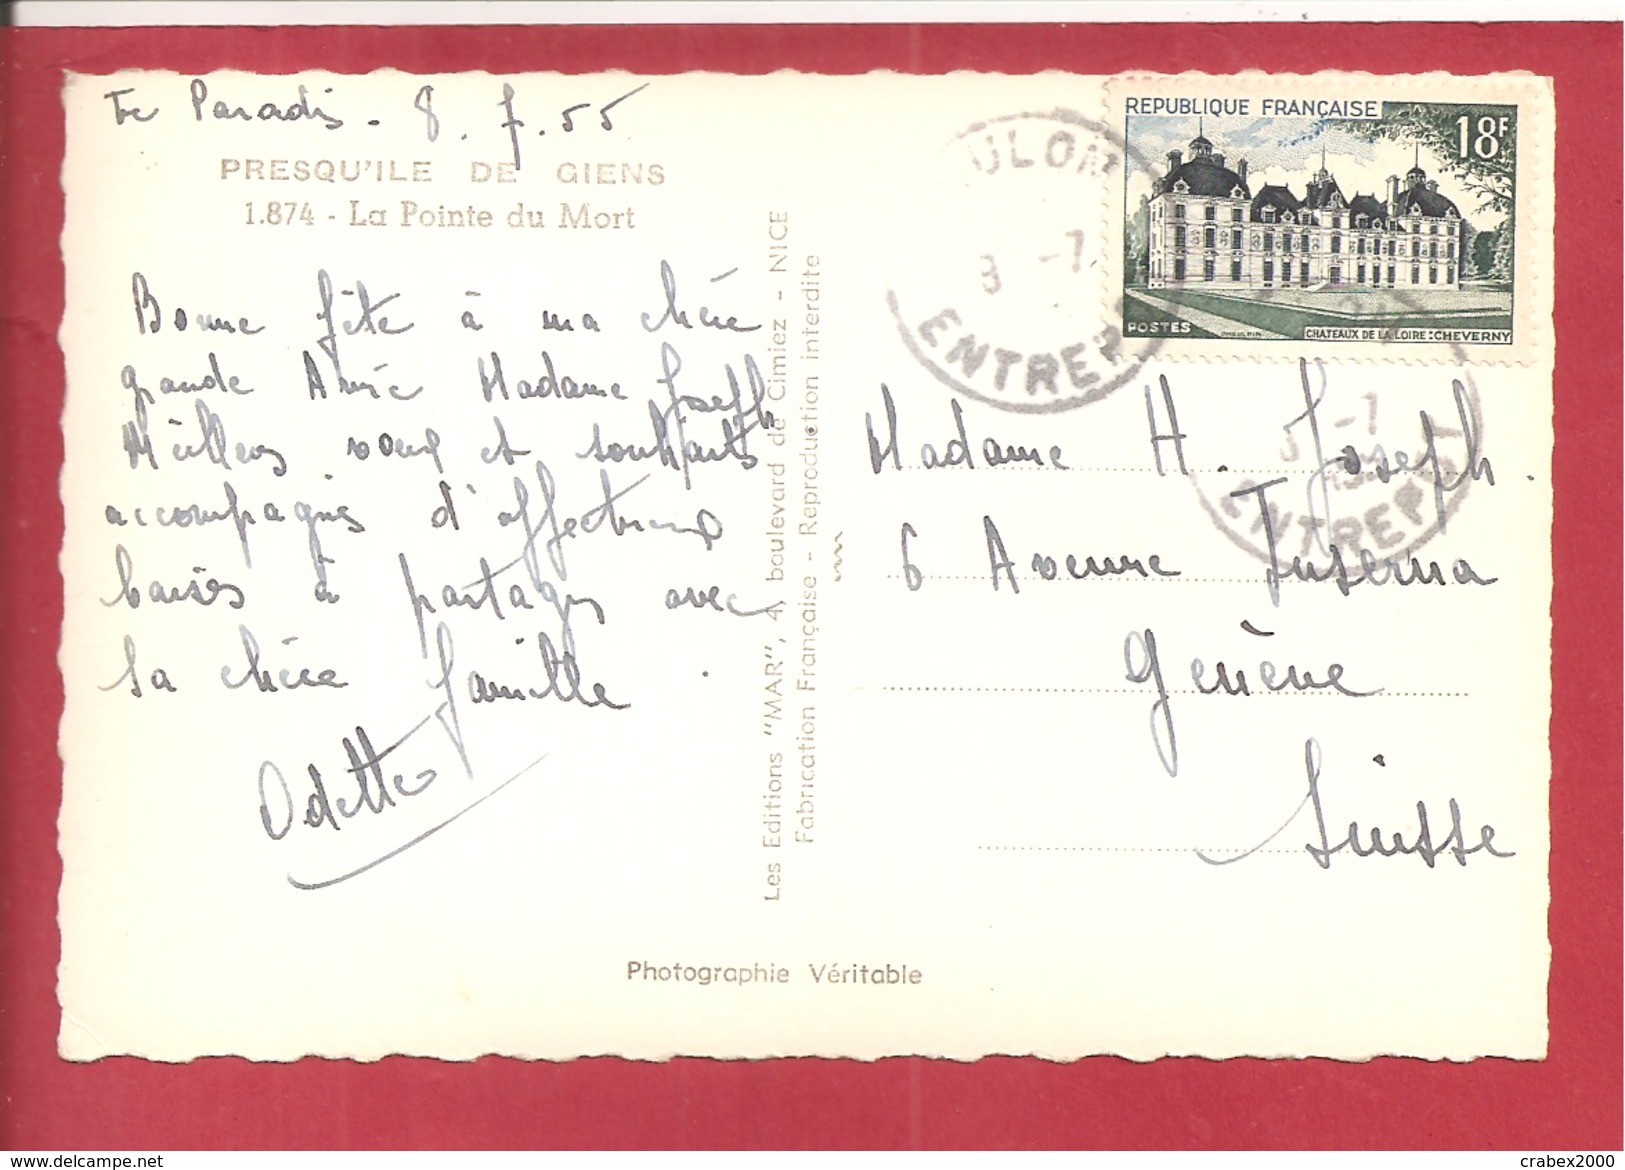 Le Paradis - 8.7.55
PRESQU'ILE DE GIENS
1.874 - La Pointe du Mort
Bonne fête à ma chère
grande Amie Madame Joseph
Meilleurs voeux et souhaits
accompagnés d'affectueux
baisers à partager avec
sa chère famille.
Odette
Les Editions "MAR", 4, boulevard de Cimiez - NICE
Fabrication Française - Reproduction interdite
Photographie Véritable
REPUBLIQUE FRANÇAISE
18F
POSTES
CHATEAUX DE LA LOIRE : CHEVERNY
ULON
8 -7
ENTREP
-7
ENTREPOT
Madame H. Joseph.
6 Avenue
Genève
Suisse
crabex2000
www.delcampe.net